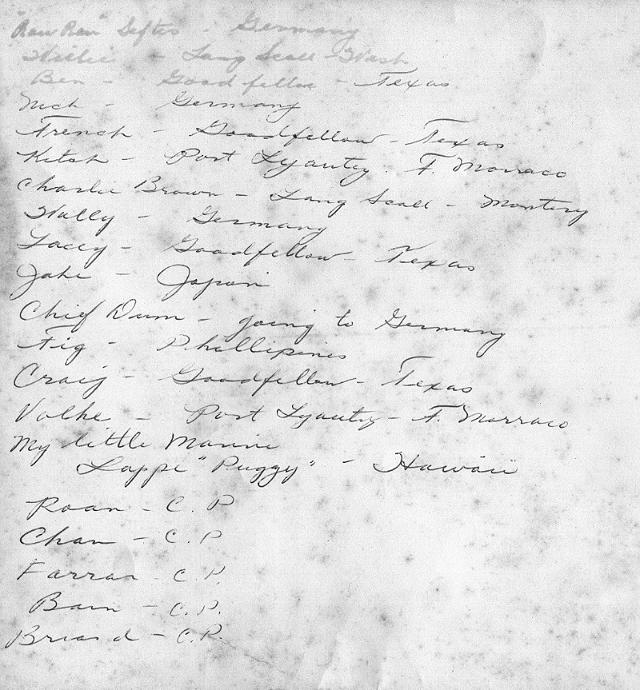 "Raw Raw" Sefter - Germany
Willie - Lang Scall - Wash
Ben - Goodfellow - Texas
Nick - Germany
French - Goodfellow - Texas
Kitsh - Port Lyautey - F. Morraco
Charlie Brown - Lang Scall - Montery
Wally - Germany
Lacey - Goodfellow - Texas
Jake - Japan
Chief Dum - going to Germany
Fig - Phillipines
Craig - Goodfellow - Texas
Volke - Port Lyautey - F. Morraco
My little Marine
Lappi "Puggy" - Hawaii
Roan - C. P.
Chan - C. P.
Farrar - C. P.
Bain - C. P.
Briand - C. P.